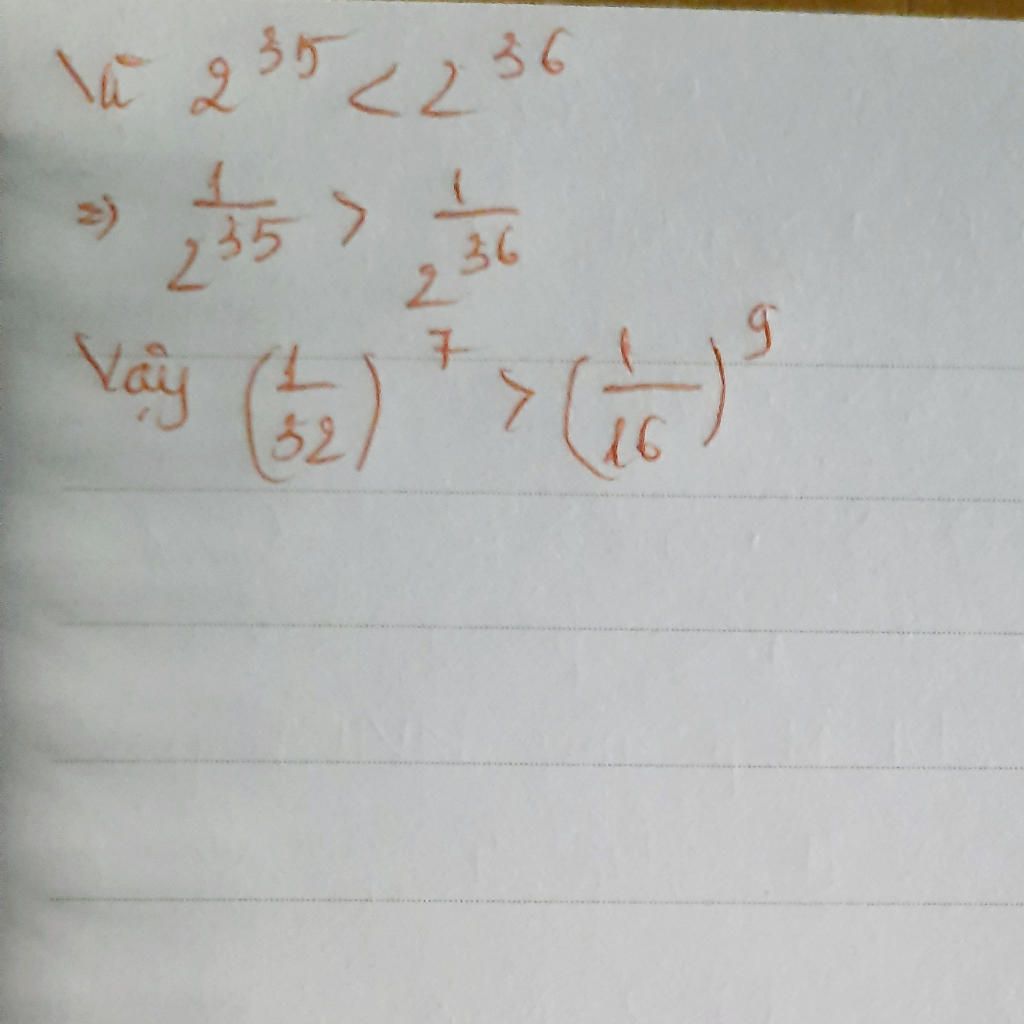 Vì 2^35 < 2^36
=> 1/2^35 > 1/2^36
Vậy (1/32)^7 > (1/16)^9